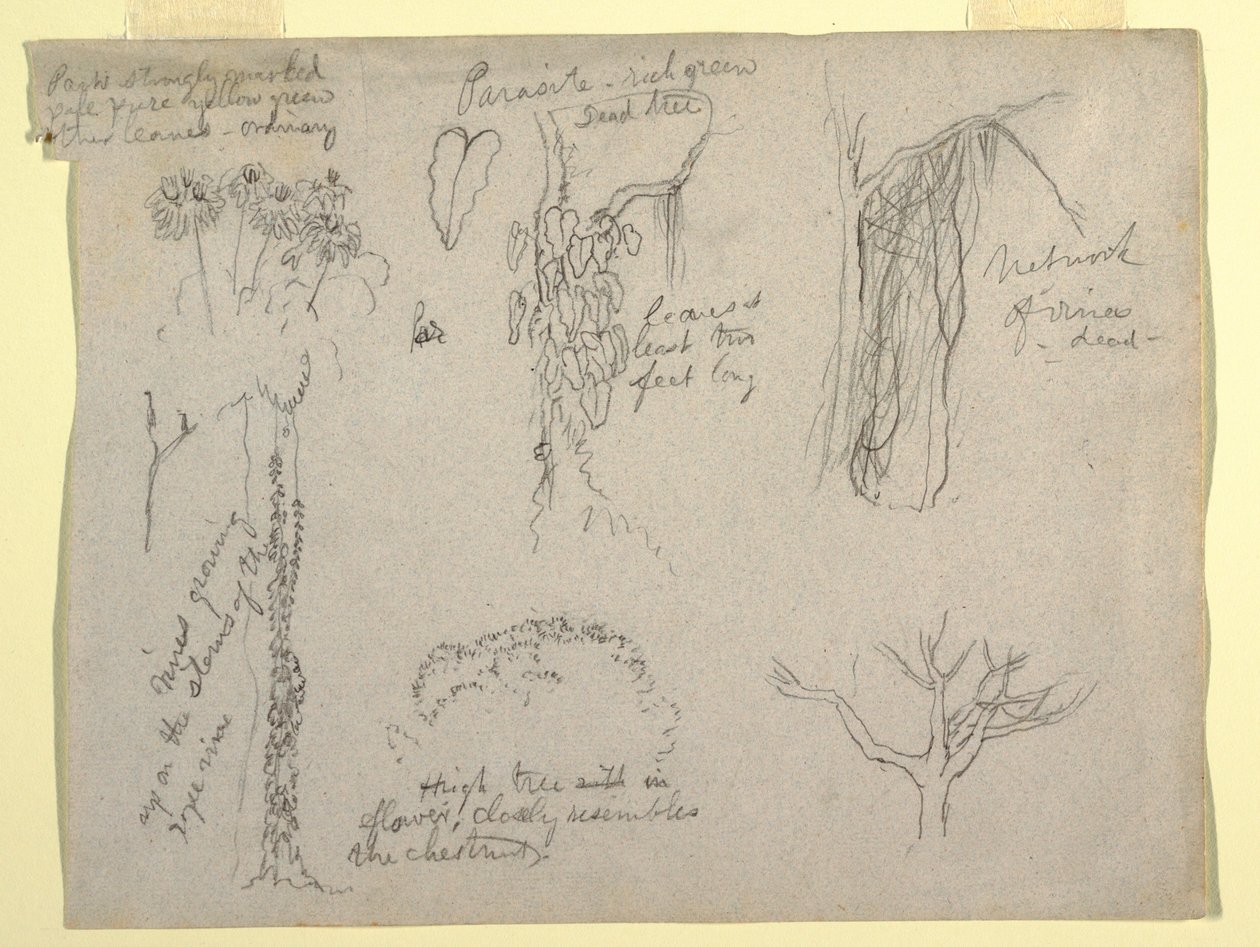 Parts strongly marked
pale pure yellow green
other leaves - ordinary
Parasite - rich green
Dead tree
leaves at
least two
feet long
Network
of vines
- dead -
vines growing
up on the stems of the
rope vine
High tree with in
flower, closely resembles
the chestnut.